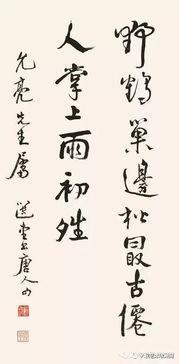 野鶴巢邊松最古僊
人掌上雨初姓
允亮先生屬 選堂書唐人句